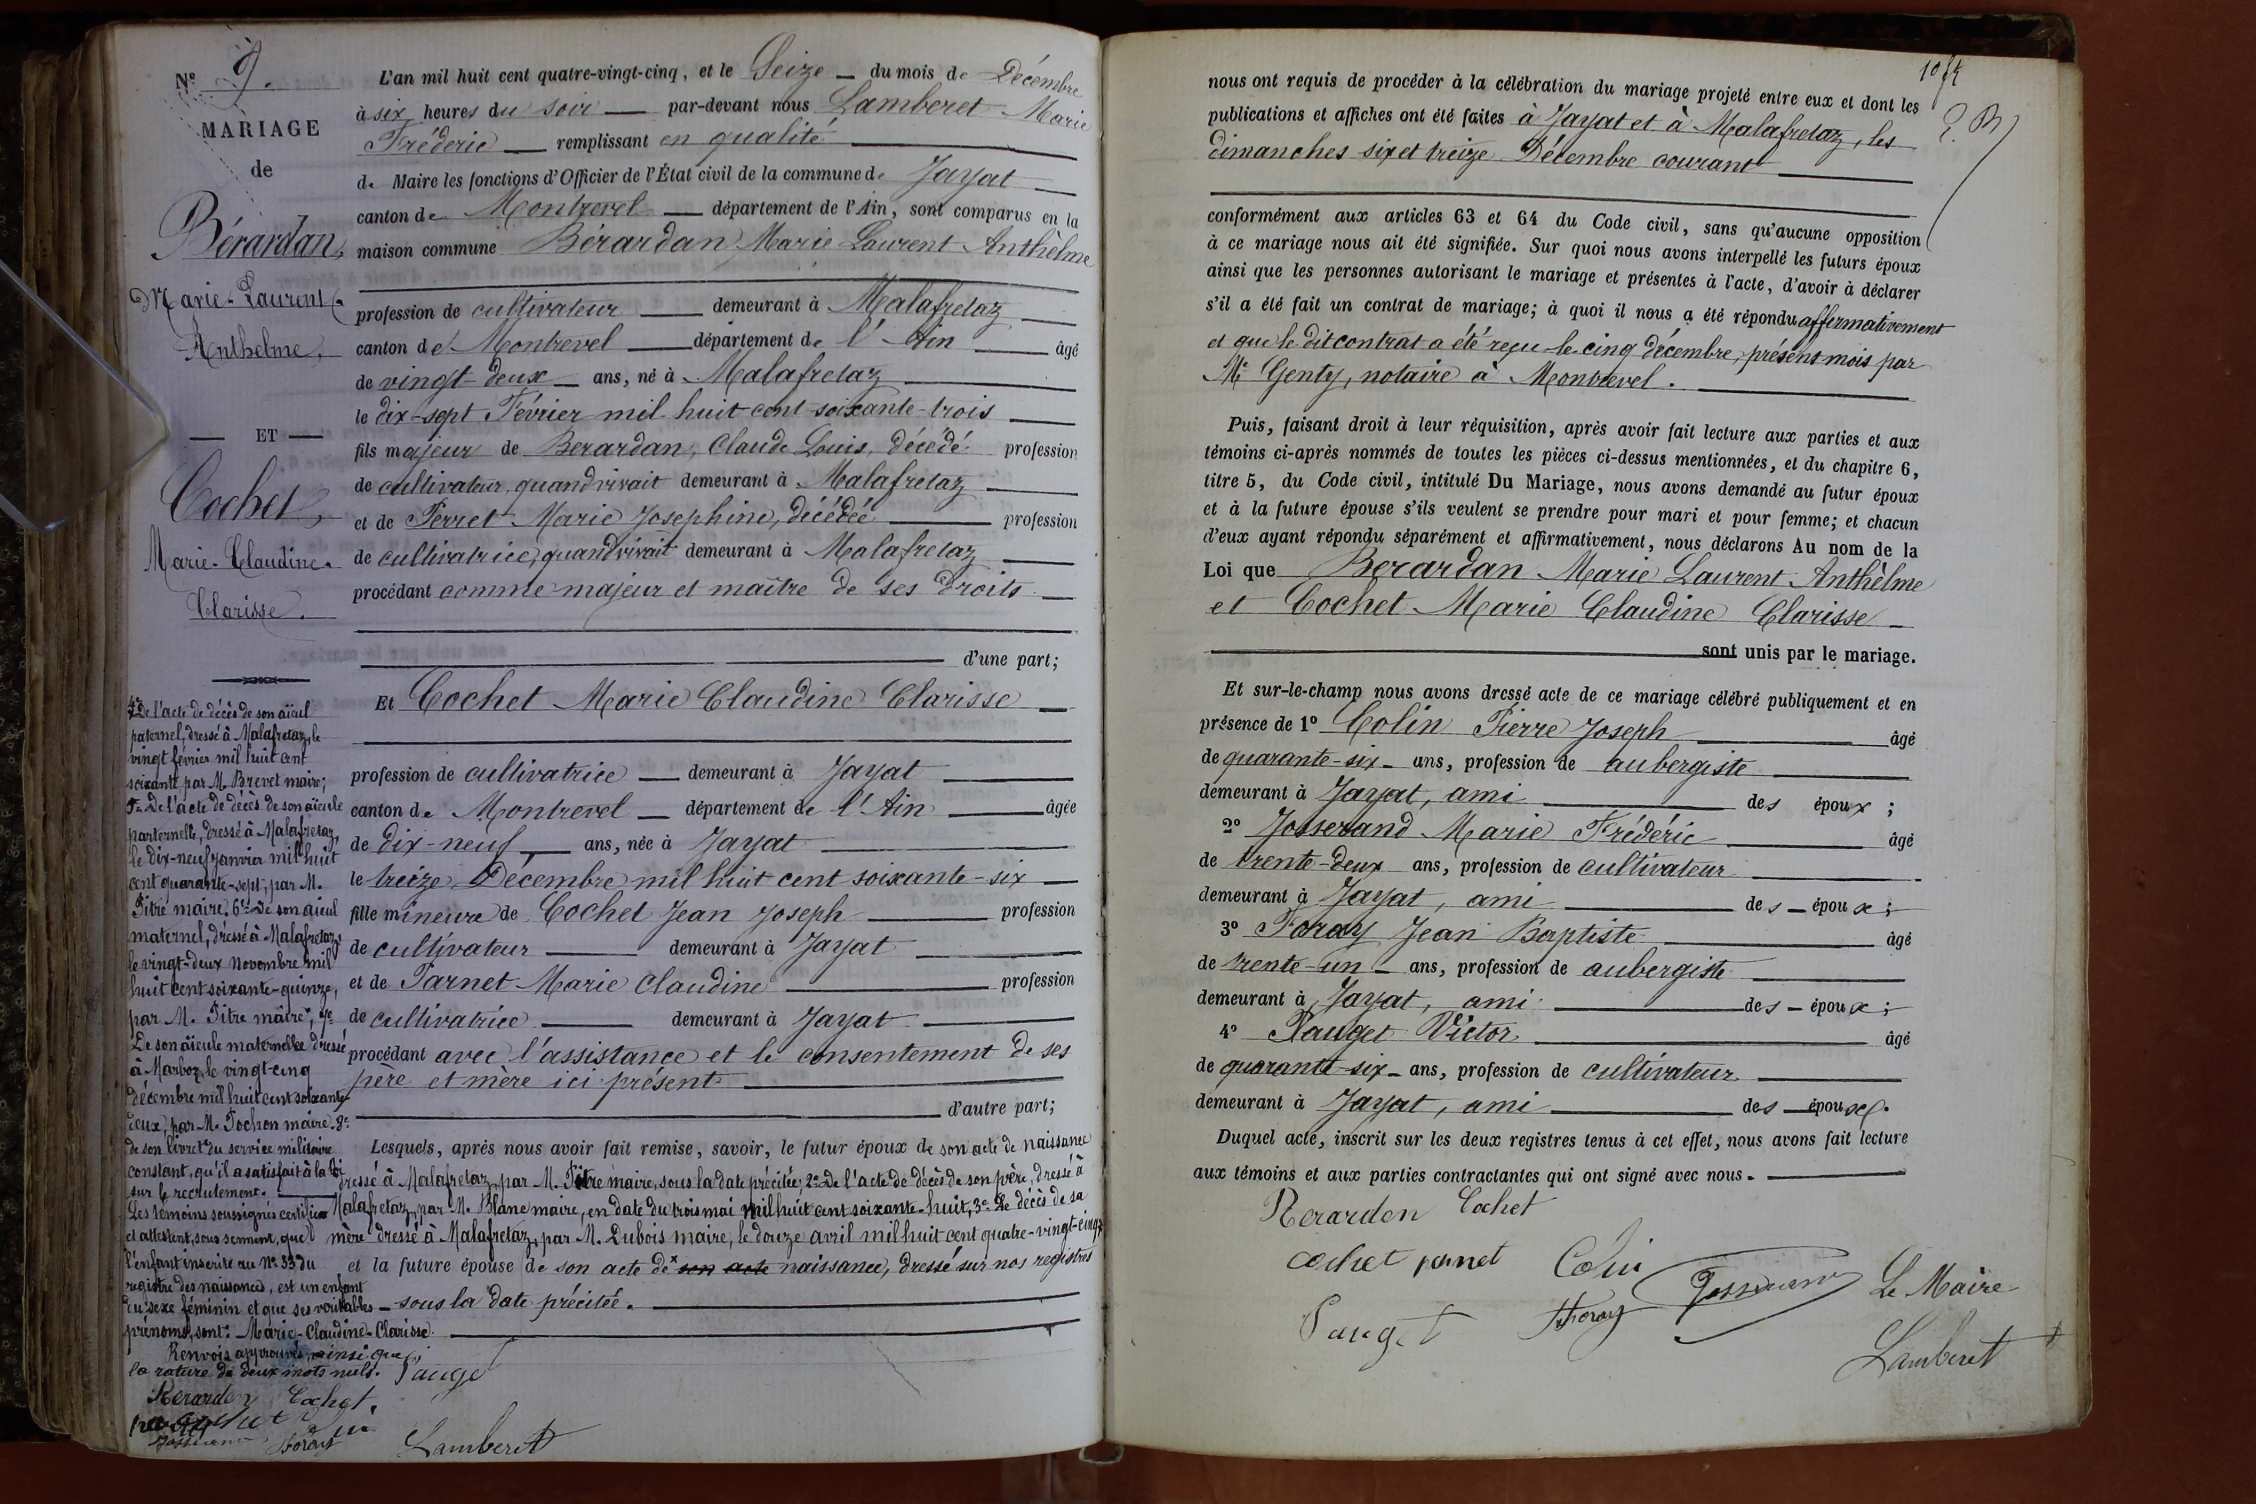 N° 9.
MARIAGE
de
Bérardan,
Marie-Laurent
Anthelme,
ET
Cochet,
Marie-Claudine-
Clarisse.
4° De l'acte de décès de son aïeul
paternel, dressé à Malafretaz, le
vingt février mil huit cent
soixante par M. Brevet maire;
5° De l'acte de décès de son aïeule
parternelle, dressé à Malafretaz,
le dix-neuf janvier mil huit
cent quarante-sept, par M.
Pitre maire. 6° De son aïeul
maternel, dressé à Malafretaz,
le vingt-deux Novembre mil
huit cent soixante-quinze,
par M. Pitre maire, 7°
De son aïeule maternelle dressé
à Marboz, le vingt-cinq
décembre mil huit cent soixante-
deux, par M. Pochon maire. 8°
de son livret du service militaire
constant, qu'il a satisfait à la loi
sur le recrutement.
Les témoins soussignés certifie
et attestent, sous serment, que
l'enfant inscrite au N° 33 du
registre des naissances, est un enfant
du sexe féminin et que ses véritables
prénoms, sont: Marie-Claudine-Clarisse.
Renvois approuvés, ainsi que
la rature de deux mots nuls. Pauget
Berardan Cochet
Foray Lamberet
L'an mil huit cent quatre-vingt-cinq, et le Seize du mois de Décembre
à six heures du soir par-devant nous Lamberet Marie
Fréderic remplissant en qualité
de Maire les fonctions d'Officier de l'État civil de la commune de Jayat
canton de Montrevel département de l'Ain, sont comparus en la
maison commune Bérardan Marie Laurent Anthèlme
profession de cultivateur demeurant à Malafretaz
canton de Montrevel département de l'Ain âgé
de vingt-deux ans, né à Malafretaz
le dix-sept Février mil huit cent soixante-trois
fils majeur de Berardan, Claude Louis, décédé profession
de cultivateur, quand vivait demeurant à Malafretaz
et de Perret Marie Josephine, décédée profession
de cultivatrice, quand vivait demeurant à Malafretaz
procédant comme majeur et maître de ses droits
d'une part;
Et Cochet Marie Claudine Clarisse
profession de cultivatrice demeurant à Jayat
canton de Montrevel département de l'Ain âgée
de dix-neuf ans, née à Jayat
le treize Décembre mil huit cent soixante-six
fille mineure de Cochet Jean Joseph profession
de cultivateur demeurant à Jayat
et de Parnet Marie Claudine profession
de cultivatrice demeurant à Jayat
procédant avec l'assistance et le consentement de ses
père et mère ici présent
d'autre part;
Lesquels, après nous avoir fait remise, savoir, le futur époux de son acte de naissance
dressé à Malafretaz, par M. Pitre maire, sous la date précitée; 2° De l'acte de décès de son père, dressé à
Malafretaz, par M. Blanc maire, en date du trois mai mil huit cent soixante-huit, 3° Le décès de sa
mère dressé à Malafretaz, par M. Dubois maire, le douze avril mil huit cent quatre-vingt-cinq,
et la future épouse de son acte de son acte naissance, dressé sur nos registres
sous la date précitée.
nous ont requis de procéder à la célébration du mariage projeté entre eux et dont les
publications et affiches ont été faites à Jayat et à Malafretaz, les
dimanches six et treize Décembre courant
conformément aux articles 63 et 64 du Code civil, sans qu'aucune opposition
à ce mariage nous ait été signifiée. Sur quoi nous avons interpellé les futurs époux
ainsi que les personnes autorisant le mariage et présentes à l'acte, d'avoir à déclarer
s'il a été fait un contrat de mariage; à quoi il nous a été répondu affirmativement
et que le dit contrat a été reçu le cinq décembre, présent mois par
Me Genty, notaire à Montrevel.
Puis, faisant droit à leur réquisition, après avoir fait lecture aux parties et aux
témoins ci-après nommés de toutes les pièces ci-dessus mentionnées, et du chapitre 6,
titre 5, du Code civil, intitulé Du Mariage, nous avons demandé au futur époux
et à la future épouse s'ils veulent se prendre pour mari et pour femme; et chacun
d'eux ayant répondu séparément et affirmativement, nous déclarons Au nom de la
Loi que Bérardan Marie Laurent Anthèlme
et Cochet Marie Claudine Clarisse
sont unis par le mariage.
Et sur-le-champ nous avons dressé acte de ce mariage célébré publiquement et en
présence de 1° Colin Pierre Joseph âgé
de quarante-six ans, profession de aubergiste
demeurant à Jayat, ami des époux;
2° Josserand Marie Frédéric âgé
de trente-deux ans, profession de cultivateur
demeurant à Jayat, ami des époux;
3° Foray Jean Baptiste âgé
de trente-un ans, profession de aubergiste
demeurant à Jayat, ami des époux;
4° Pauget Victor âgé
de quarante-six ans, profession de cultivateur
demeurant à Jayat, ami des époux.
Duquel acte, inscrit sur les deux registres tenus à cet effet, nous avons fait lecture
aux témoins et aux parties contractantes qui ont signé avec nous.
Berardan Cochet
cochet parnet Colin Josserand Le Maire
Pauget Foray
Lamberet